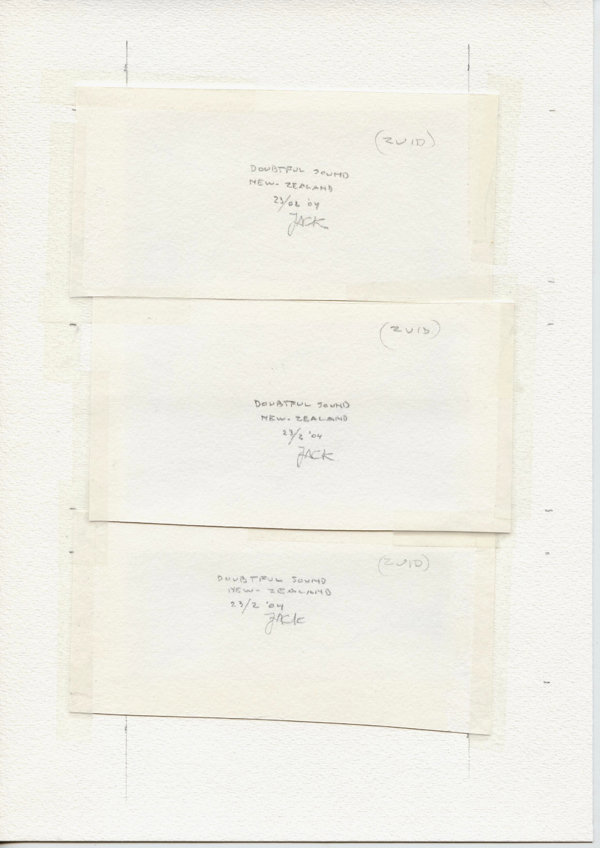 (ZUID)
DOUBTFUL SOUND
NEW-ZEALAND
23/02 '04
JACK
(ZUID)
DOUBTFUL SOUND
NEW-ZEALAND
23/2 '04
JACK
(ZUID)
DOUBTFUL SOUND
NEW-ZEALAND
23/2 '04
JACK